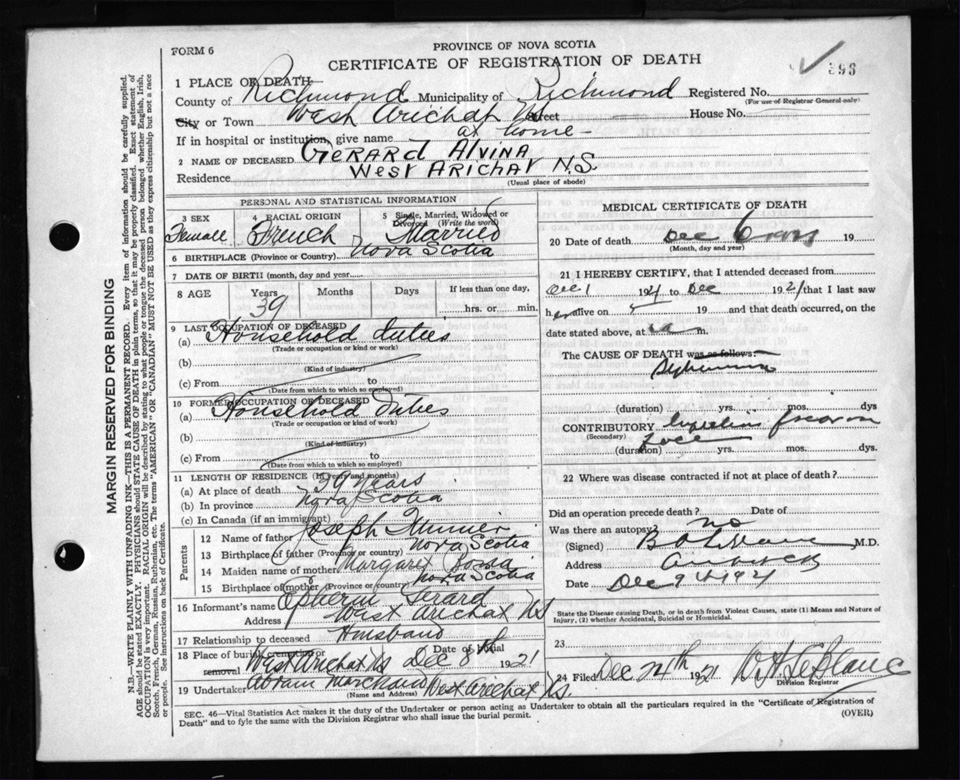 PROVINCE OF NOVA SCOTIA
FORM 6
CERTIFICATE OF REGISTRATION OF DEATH
1 PLACE OF DEATH—
County of Richmond Municipality of Richmond Registered No.
(For use of Registrar General only)
City or Town West Arichat Street House No.
If in hospital or institution, give name — at home —
2 NAME OF DECEASED GERARD ALVINA
Residence WEST ARICHAT N.S.
(Usual place of abode)
PERSONAL AND STATISTICAL INFORMATION
3 SEX Female
4 RACIAL ORIGIN French
5 Single, Married, Widowed or Divorced (Write the word) Married
6 BIRTHPLACE (Province or Country) Nova Scotia
7 DATE OF BIRTH (month, day and year)
8 AGE Years Months Days If less than one day,
39 hrs. or min.
9 LAST OCCUPATION OF DECEASED
(a) Household duties
(Trade or occupation or kind of work)
(b)
(Kind of industry)
(c) From to
(Date from which to which so employed)
10 FORMER OCCUPATION OF DECEASED
(a) Household duties
(Trade or occupation or kind of work)
(b)
(Kind of industry)
(c) From to
(Date from which to which so employed)
11 LENGTH OF RESIDENCE (In years and months)
(a) At place of death 39 years
(b) In province Nova Scotia
(c) In Canada (if an immigrant)
Parents
12 Name of father Joseph
13 Birthplace of father (Province or country) Nova Scotia
14 Maiden name of mother Margaret
15 Birthplace of mother (Province or country) Nova Scotia
16 Informant's name Gerard
Address West Arichat NS
17 Relationship to deceased Husband
18 Place of burial, cremation or removal West Arichat NS Date of burial Dec 8th 1921
19 Undertaker Abram Marchand West Arichat NS.
(Name and Address)
MEDICAL CERTIFICATE OF DEATH
20 Date of death Dec 6 19
(Month, day and year)
21 I HEREBY CERTIFY, that I attended deceased from
Dec 1 1921 to Dec 1921 that I last saw
her alive on 19 and that death occurred, on
date stated above, at m.
The CAUSE OF DEATH was as follows:
(duration) yrs. mos. dys
CONTRIBUTORY
(Secondary)
(duration) yrs. mos. dys.
22 Where was disease contracted if not at place of death?
Did an operation precede death? Date of
Was there an autopsy? no
(Signed) B LeBlanc M.D.
Address Arichat
Date Dec 9th 1921
State the Disease causing Death, or in death from Violent Causes, state (1) Means and Nature of
Injury, (2) whether Accidental, Suicidal or Homicidal.
23
24 Filed Dec 24th 1921 LeBlanc
Division Registrar
SEC. 46—Vital Statistics Act makes it the duty of the Undertaker or person acting as Undertaker to obtain all the particulars required in the "Certificate of Registration of
Death" and to fyle the same with the Division Registrar who shall issue the burial permit. (OVER)
MARGIN RESERVED FOR BINDING
N.B.—WRITE PLAINLY WITH UNFADING INK—THIS IS A PERMANENT RECORD. Every item of information should be carefully supplied.
AGE should be stated EXACTLY. PHYSICIANS should STATE CAUSE OF DEATH in plain terms, so that it may be properly classified. Exact statement of
OCCUPATION is very important. RACIAL ORIGIN will be described by stating to what people or tongue the deceased person belonged whether English, Irish,
Scotch, French, German, Russian, Ruthenian, etc. The terms "AMERICAN" or "CANADIAN" MUST NOT BE USED as they express citizenship but not a race
or people. See instructions on back of Certificate.